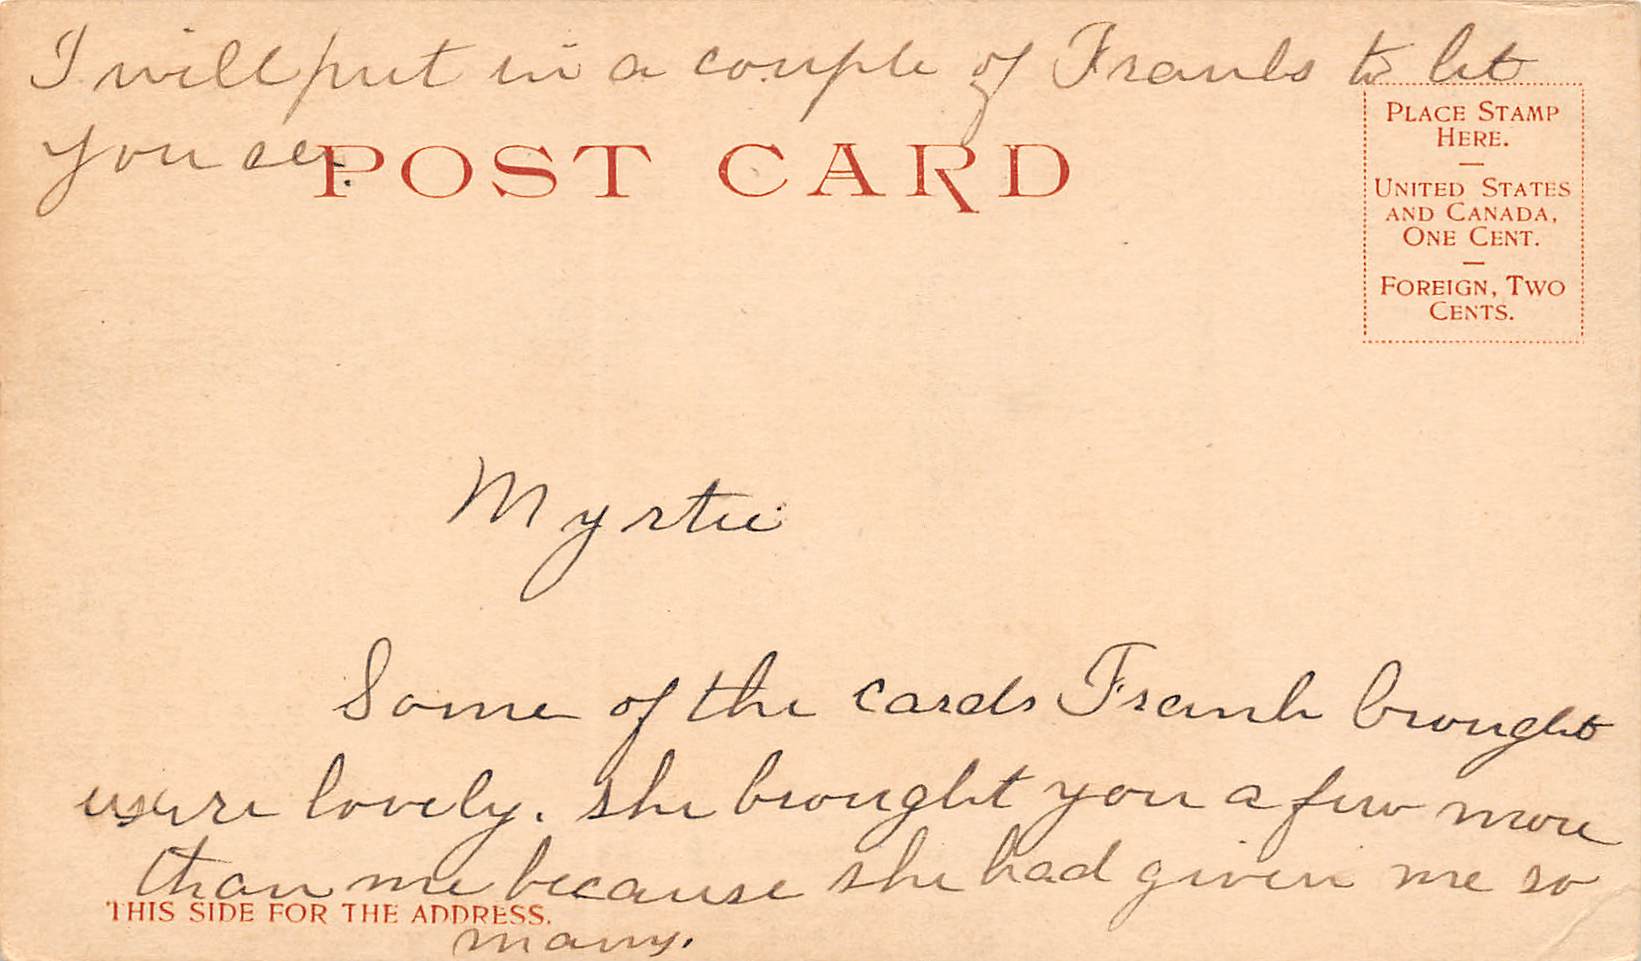 I will put in a couple of Franks to let
you see.
POST CARD
PLACE STAMP
HERE.
—
UNITED STATES
AND CANADA,
ONE CENT.
—
FOREIGN, TWO
CENTS.
Myrtie
Some of the cards Frank brought
were lovely. She brought you a few more
than me because she had given me so
many.
THIS SIDE FOR THE ADDRESS.